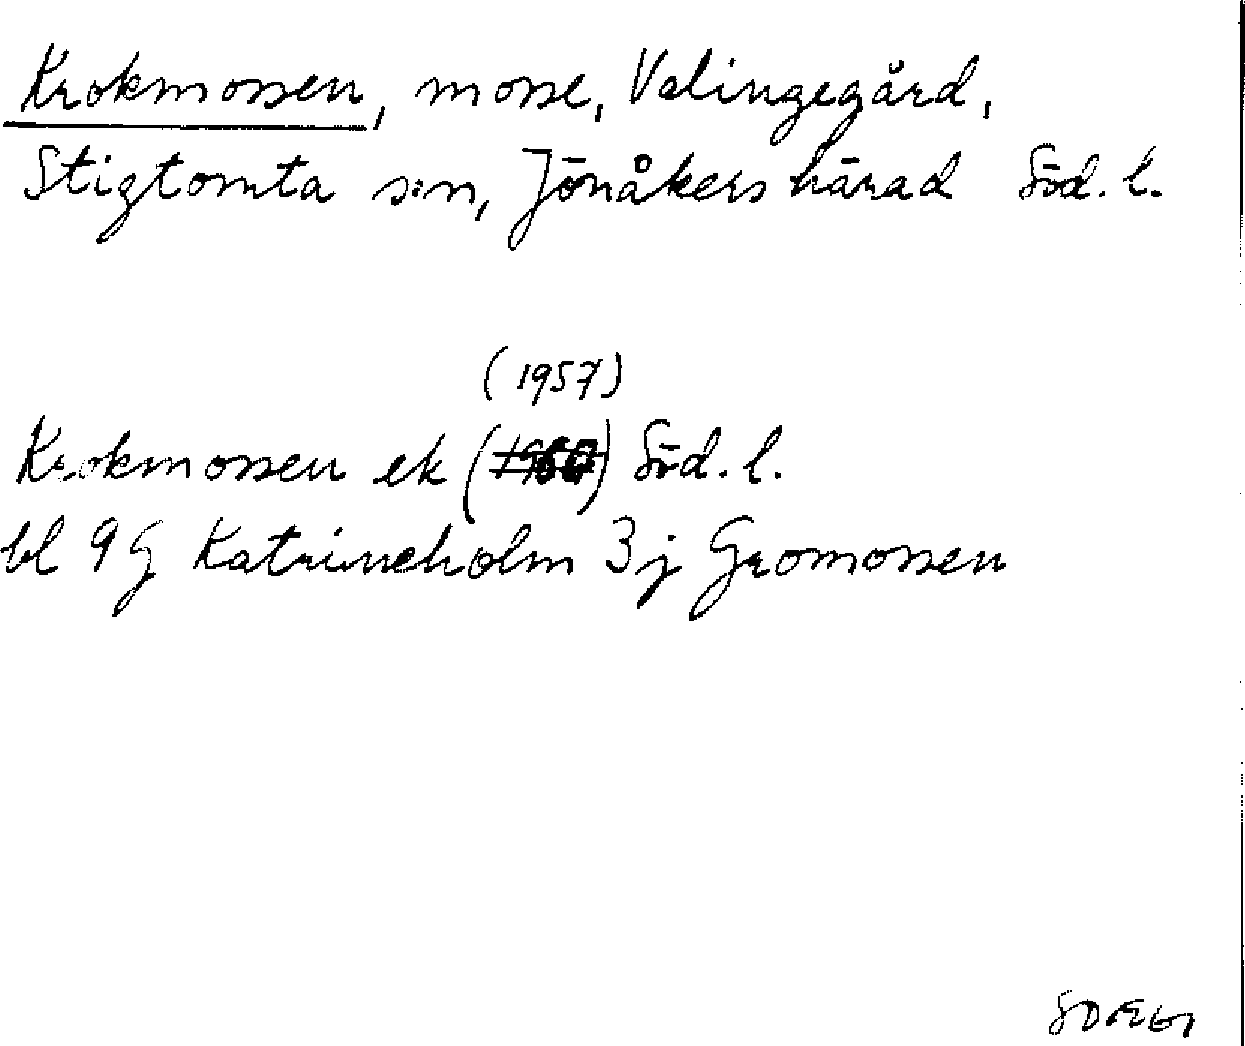 Krokmossen, mosse, Valingegård,
Stigtomta s:n, Jönåkers härad Söd. l.
(1957)
Krokmossen ek (1960) Söd. l.
bl 9G Katrineholm 3j Gromossen